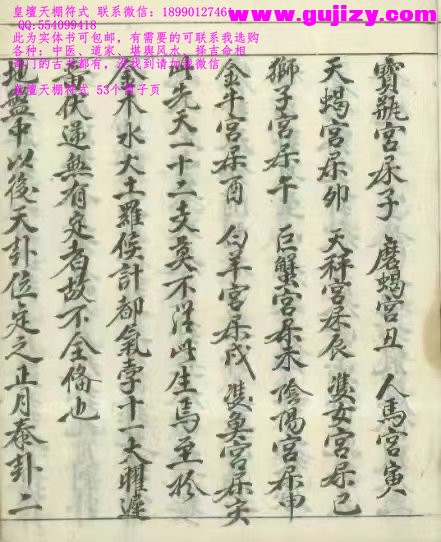 www.gujizy.com
皇壇天棚符式 联系微信:1899012746
QQ:554099418
此为实体书可包邮,有需要的可联系我选购
各种:中医、道家、堪舆风水、择吉命相
奇门的古书都有,没找到请加我微信
皇壇天棚符式 53个筒子页
寶瓶宮居子 磨蝎宮丑 人馬宮寅
天蝎宮居卯 天秤宮居辰 雙女宮居巳
獅子宮居午 巨蟹宮居未 陰陽宮居申
金牛宮居酉 白羊宮居戌 雙魚宮居亥
此先天一十二支莫不從此生焉至於
金木水火土羅侯計都氣孛十一大曜遲
留伏逆無有定者故不全偹也
地盤中以後天卦位定之正月泰卦二